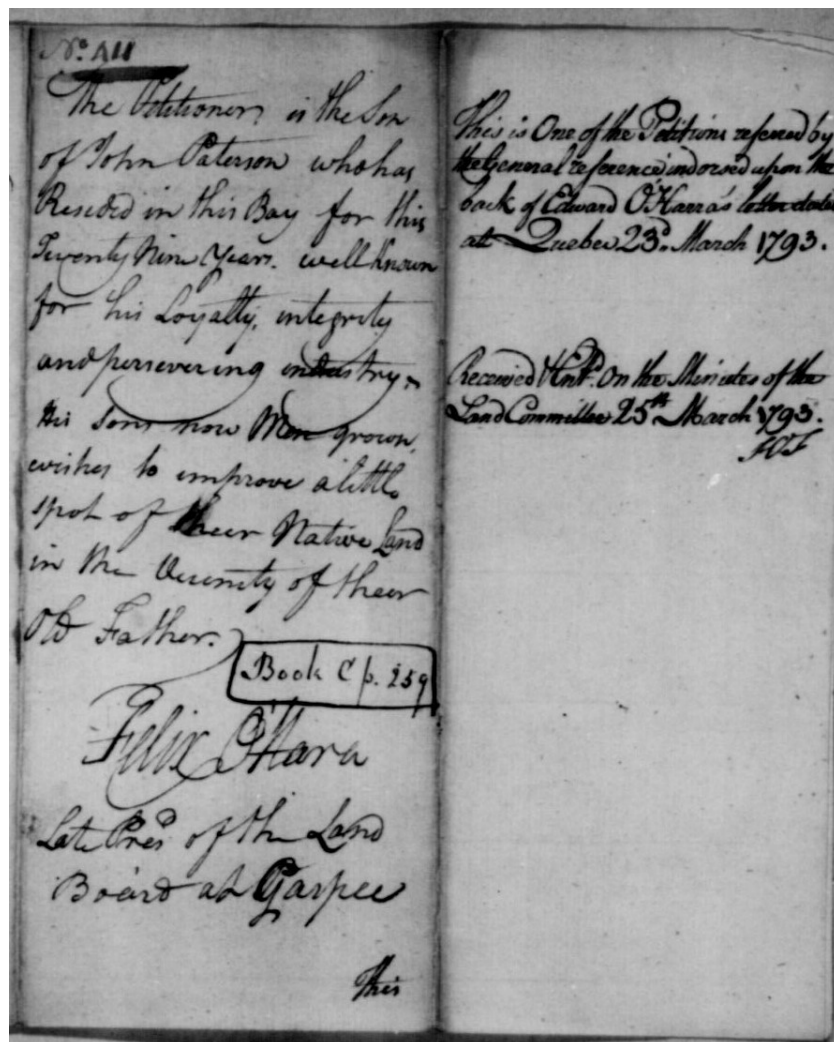 No. 411
The Petitioner, is the Son
of John Paterson who has
Resided in this Bay for this
Twenty Nine Years. well Known
for his Loyalty, integrity
and persevering industry,
His sons now Men grown,
wishes to improve a little
spot of their Native Land
in the Vicinity of their
Old Father.
Book C p. 259
Felix O'Hara
Late Presd of the Land
Board at Gaspee
This
This is One of the Petitions referred by
the General reference indorsed upon the
back of Edward O'Harra's letter dated
at Quebec 23d. March 1793.
Received & Entd. On the Minutes of the
Land Committee 25th March 1793.